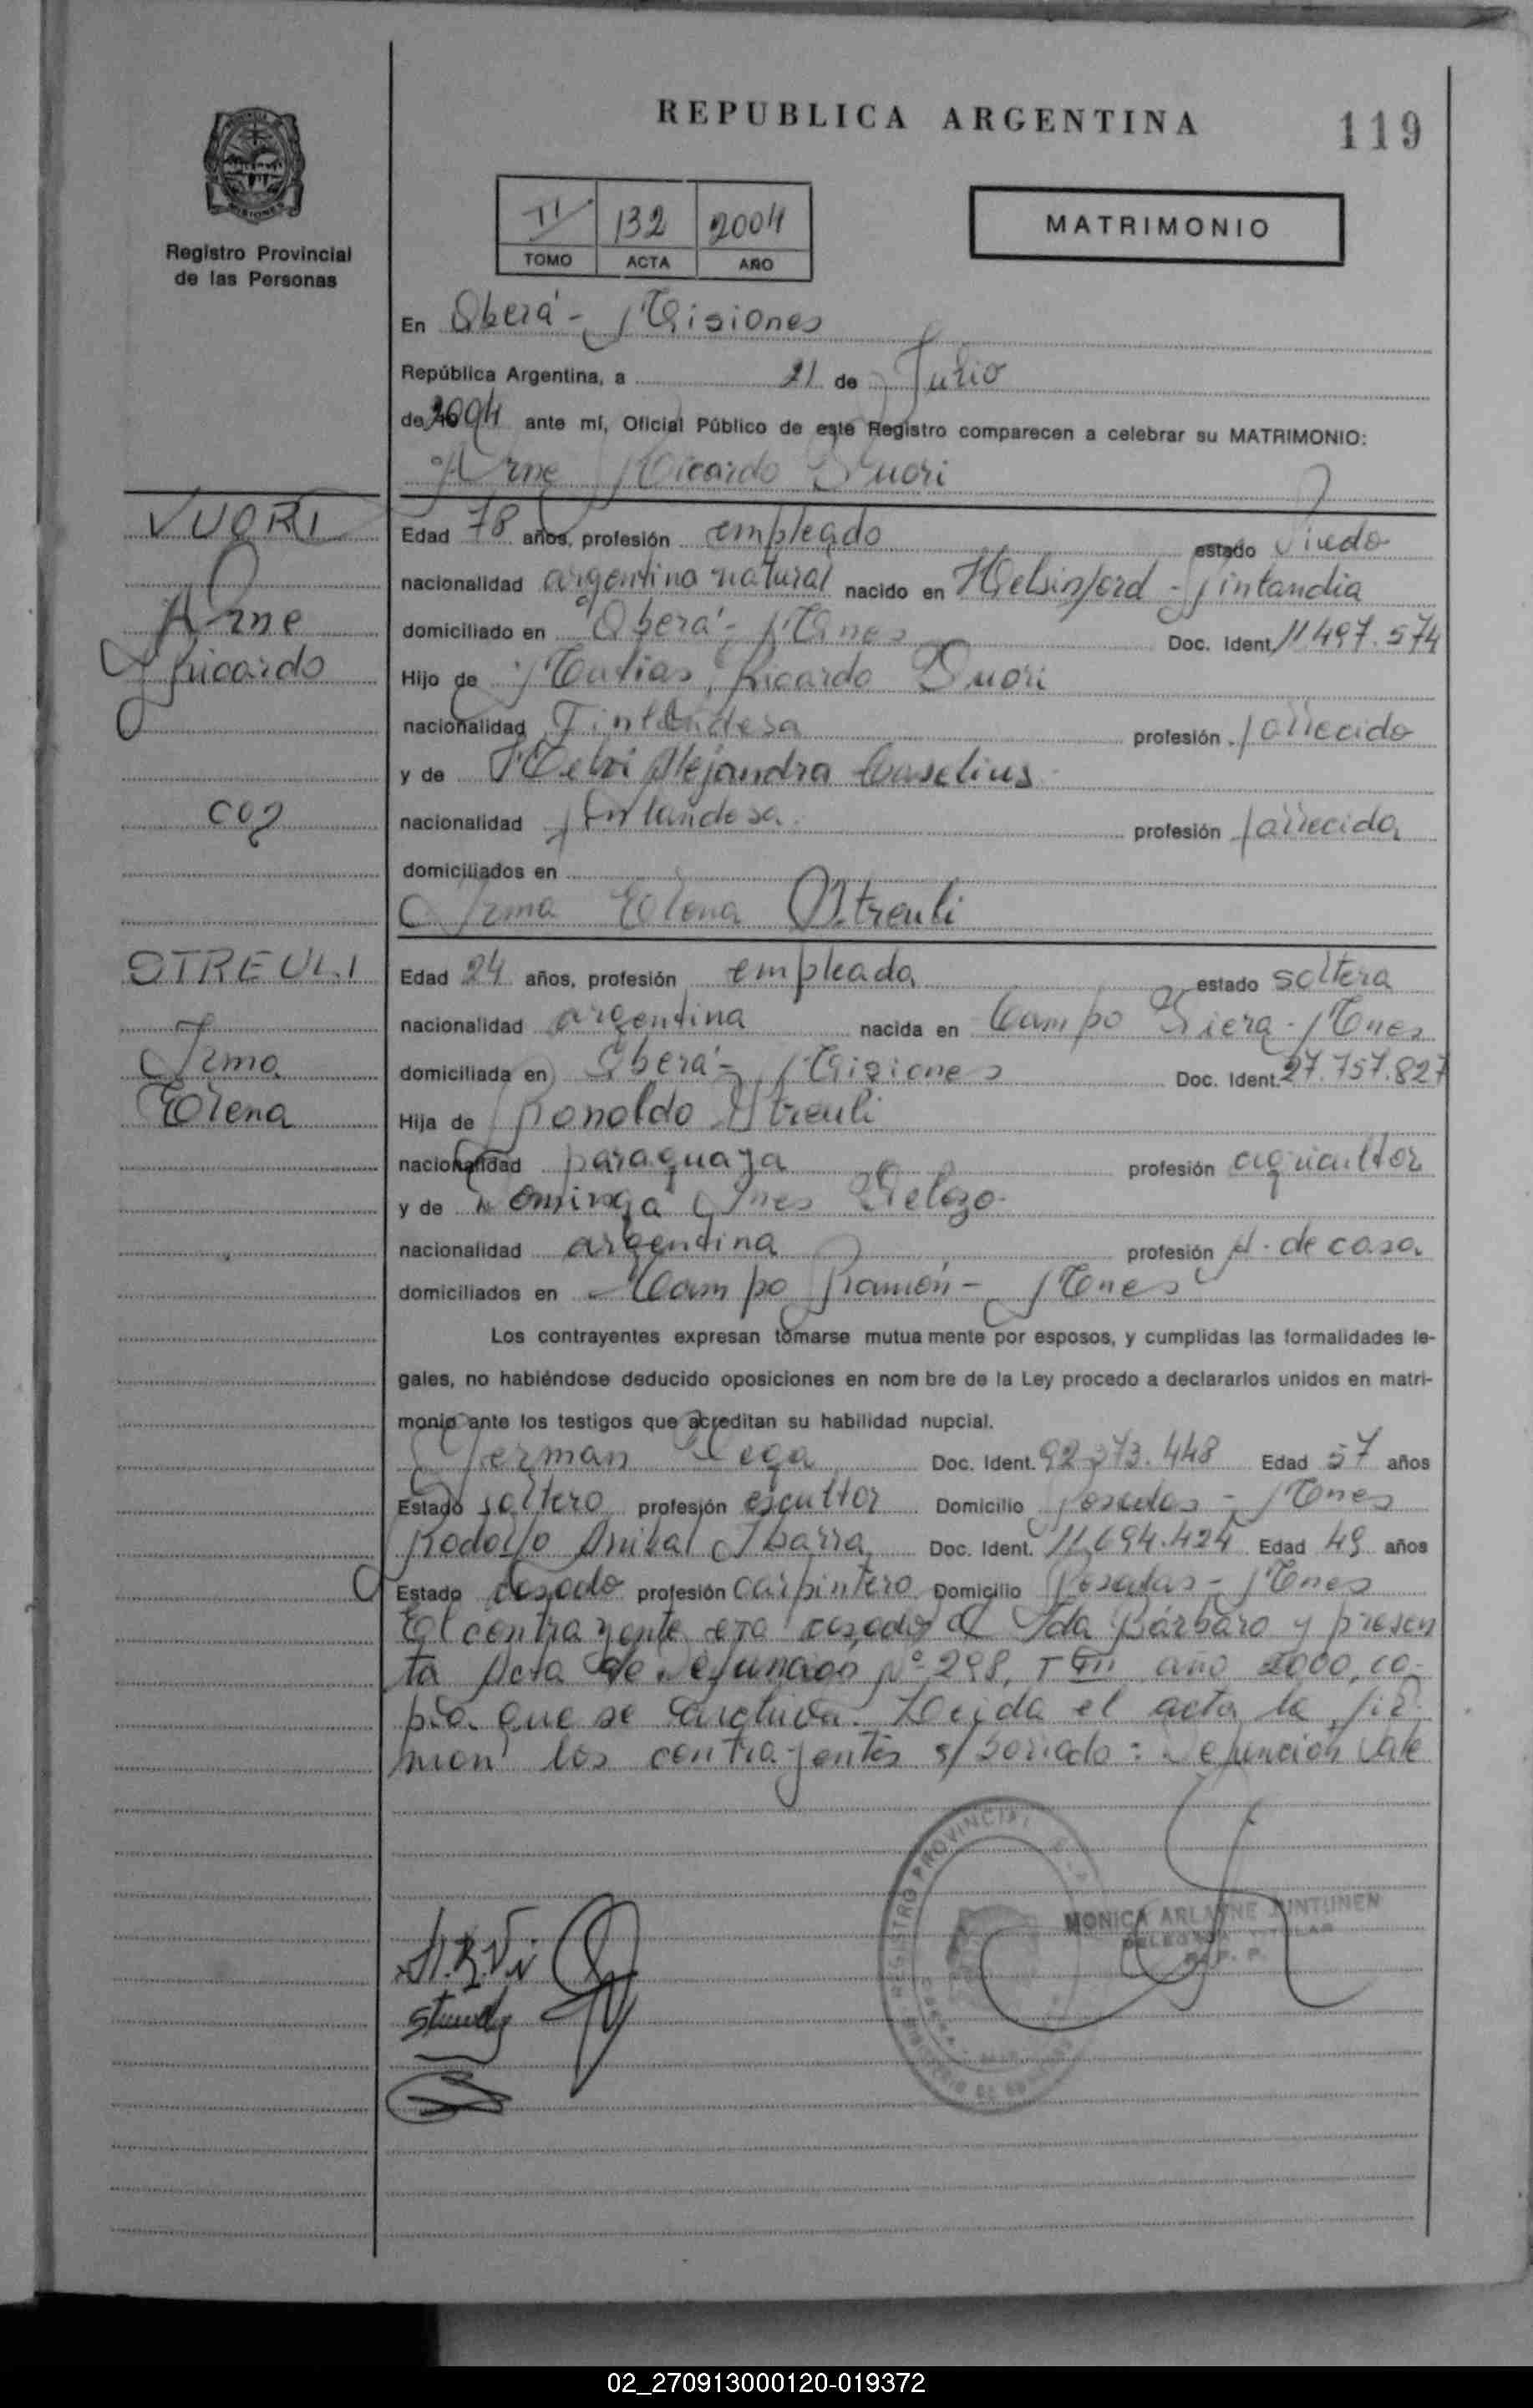 REPUBLICA ARGENTINA
119
Registro Provincial
de las Personas
II 132 2004
TOMO ACTA AÑO
MATRIMONIO
En Oberá - Misiones
República Argentina, a 21 de Julio
de 2004 ante mí, Oficial Público de este Registro comparecen a celebrar su MATRIMONIO:
Arne Ricardo Vuori
VUORI
Arne
Ricardo
con
Edad 78 años, profesión empleado estado viudo
nacionalidad argentino natural nacido en Helsinford - Finlandia
domiciliado en Oberá - Mnes Doc. Ident. 11497.574
Hijo de Matias Ricardo Vuori
nacionalidad Finlandesa profesión fallecido
y de Alejandra
nacionalidad finlandesa profesión fallecida
domiciliados en
Irma Elena Streuli
STREULI
Irma
Elena
Edad 24 años, profesión empleada estado soltera
nacionalidad argentina nacida en Campo Viera - Mnes
domiciliada en Oberá - Misiones Doc. Ident. 27.757.827
Hija de Ronoldo Streuli
nacionalidad paraguaya profesión agricultor
y de Dominga Ines Velozo
nacionalidad argentina profesión A. de casa
domiciliados en Campo Ramón - Mnes
Los contrayentes expresan tomarse mutua mente por esposos, y cumplidas las formalidades le-
gales, no habiéndose deducido oposiciones en nom bre de la Ley procedo a declararlos unidos en matri-
monio ante los testigos que acreditan su habilidad nupcial.
German Vega Doc. Ident. 92.273.448 Edad 57 años
Estado soltero profesión escultor Domicilio Posadas - Mnes
Rodolfo Anibal Ibarra Doc. Ident. 11.694.424 Edad 49 años
Estado casado profesión carpintero Domicilio Posadas - Mnes
El contrayente era casado Ida Bárbaro y presen
ta Acta de Defunción Nº 298, T año 2000, co-
pia que se archiva. Leida el acta la fir
man los contrayentes s/borrado: Defunción Vale
A.R.V
REGISTRO PROVINCIAL
MONICA ARLANNE JUNTUNEN
DELEGADA TITULAR
R. P. P.
02_270913000120-019372